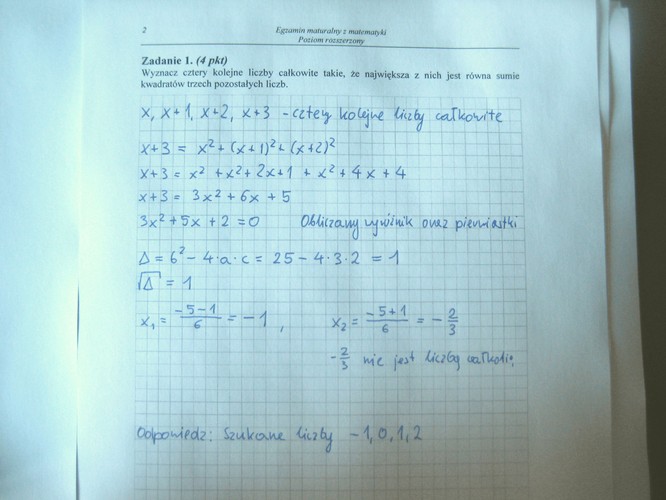 2
Egzamin maturalny z matematyki
Poziom rozszerzony
Zadanie 1. (4 pkt)
Wyznacz cztery kolejne liczby całkowite takie, że największa z nich jest równa sumie
kwadratów trzech pozostałych liczb.
x, x+1, x+2, x+3 - cztery kolejne liczby całkowite
x+3 = x² + (x+1)² + (x+2)²
x+3 = x² + x² + 2x+1 + x² + 4x + 4
x+3 = 3x² + 6x + 5
3x² + 5x + 2 = 0 Obliczamy wyróżnik oraz pierwiastki
Δ = 6² - 4·a·c = 25 - 4·3·2 = 1
√Δ = 1
x₁ = (-5-1)/6 = -1, x₂ = (-5+1)/6 = -2/3
-2/3 nie jest liczbą
Odpowiedź: Szukane liczby -1, 0, 1, 2